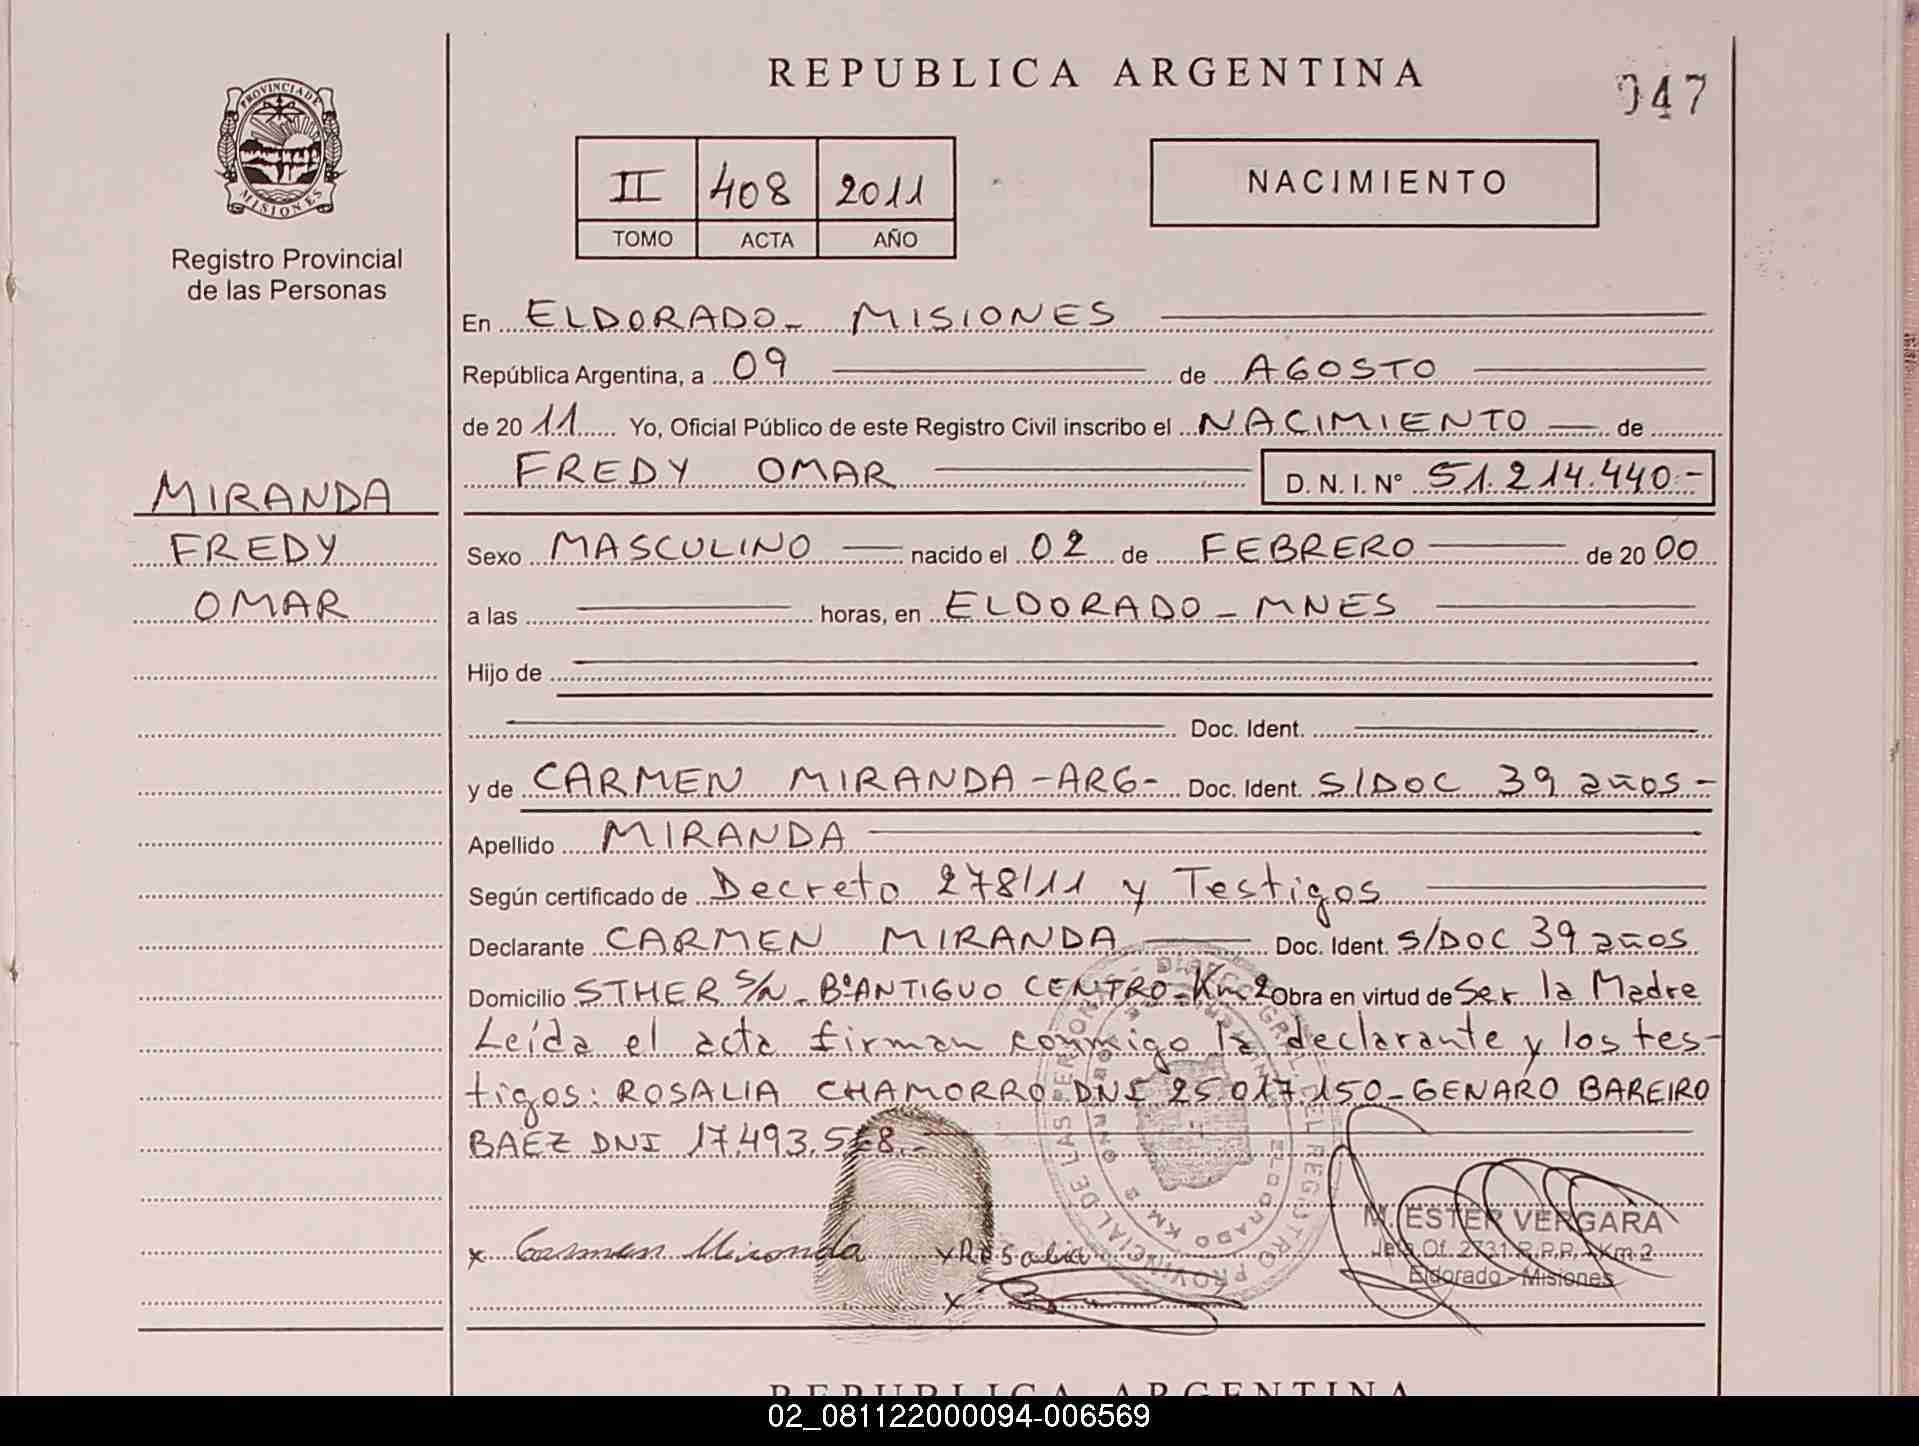 REPUBLICA ARGENTINA
047
PROVINCIA DE
MISIONES
Registro Provincial
de las Personas
II 408 2011
TOMO ACTA AÑO
NACIMIENTO
En ELDORADO - MISIONES
República Argentina, a 09 de AGOSTO
de 20 11 Yo, Oficial Público de este Registro Civil inscribo el NACIMIENTO de
FREDY OMAR D. N. I. N° 51.214.440.-
MIRANDA
FREDY
OMAR
Sexo MASCULINO nacido el 02 de FEBRERO de 20 00
a las horas, en ELDORADO - MNES
Hijo de
Doc. Ident.
y de CARMEN MIRANDA - ARG - Doc. Ident. S/DOC 39 años -
Apellido MIRANDA
Según certificado de Decreto 278/11 y Testigos
Declarante CARMEN MIRANDA Doc. Ident. S/DOC 39 años
Domicilio STHER S/N - B° ANTIGUO CENTRO - Km 2 Obra en virtud de Ser la Madre
Leída el acta firman conmigo la declarante y los tes-
tigos: ROSALIA CHAMORRO DNI 25.017.150 - GENARO BAREIRO
BAEZ DNI 17.493.5
x Carmen Miranda x Rosalia
x
M. ESTER VERGARA
Jefa Of. 2731 R.P.P. - Km. 2
Eldorado - Misiones
REPUBLICA ARGENTINA
02_081122000094-006569